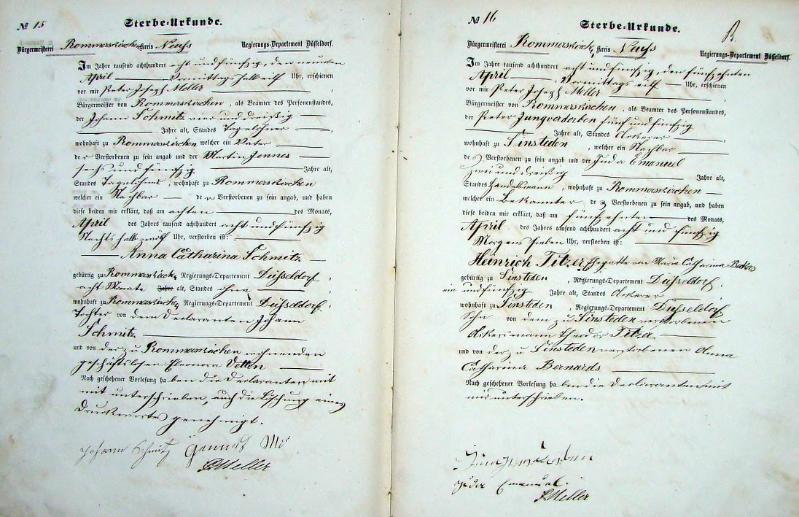 № 15
Sterbe-Urkunde.
Bürgermeisterei Rommerskirchen Kreis Neuss Regierungs-Departement Düsseldorf.
Im Jahre tausend achthundert acht und fünfzig den neunten
April Vormittags halb Uhr, erschienen
vor mir Peter Joseph Meller
Bürgermeister von Rommerskirchen, als Beamter des Personenstandes,
der Johann Schmitz vier und dreißig
Jahre alt, Standes Tagelöhner
wohnhaft zu Rommerskirchen welcher ein Vater
der Verstorbenen zu sein angab und der Martin Jennes
sechs und fünfzig Jahre alt,
Standes Tagelöhner, wohnhaft zu Rommerskirchen
welcher ein Nachbar der Verstorbenen zu sein angab, und haben
diese beiden mir erklärt, daß am achten des Monats
April des Jahres tausend achthundert acht und fünfzig
Nachts halb zwölf Uhr, verstorben ist:
Anna Catharina Schmitz
gebürtig zu Rommerskirchen, Regierungs-Departement Düsseldorf,
acht Monate alt, Standes ohne
wohnhaft zu Rommerskirchen, Regierungs-Departement Düsseldorf
Tochter von dem Declaranten Johann
Schmitz
und von der zu Rommerskirchen wohnenden
geschäftslosen Eleonora
Nach geschehener Vorlesung haben die Declaranten mit
mir unterschrieben, auch die Löschung eines
Druckwortes genehmigt.
Johann Schmitz
P. Meller
№ 16
Sterbe-Urkunde.
Bürgermeisterei Rommerskirchen Kreis Neuss Regierungs-Departement Düsseldorf.
Im Jahre tausend achthundert acht und fünfzig den fünfzehnten
April Vormittags elf Uhr, erschienen
vor mir Peter Joseph Meller
Bürgermeister von Rommerskirchen, als Beamter des Personenstandes,
der Peter Jungverdorben fünf und fünfzig
Jahre alt, Standes Ackerer
wohnhaft zu Sinsteden, welcher ein Nachbar
des Verstorbenen zu sein angab und der Juda Emanuel
zwei und dreißig Jahre alt,
Standes Handelsmann, wohnhaft zu Rommerskirchen
welcher ein Bekannter des Verstorbenen zu sein angab, und haben
diese beiden mir erklärt, daß am fünfzehnten des Monats,
April des Jahres tausend achthundert acht und fünfzig
Morgens Uhr, verstorben ist:
Heinrich Titzer Ehegatte von Maria Catharina
gebürtig zu Sinsteden, Regierungs-Departement Düsseldorf
ein und fünfzig Jahre alt, Standes Ackerer
wohnhaft zu Sinsteden, Regierungs-Departement Düsseldorf
Sohn von dem zu Sinsteden verstorbenen
Ackersmann Theodor Titzer
und von der zu Sinsteden verstorbenen Anna
Catharina Bernards
Nach geschehener Vorlesung haben die Declaranten mit
mir unterschrieben.
Juda Emanuel
P. Meller